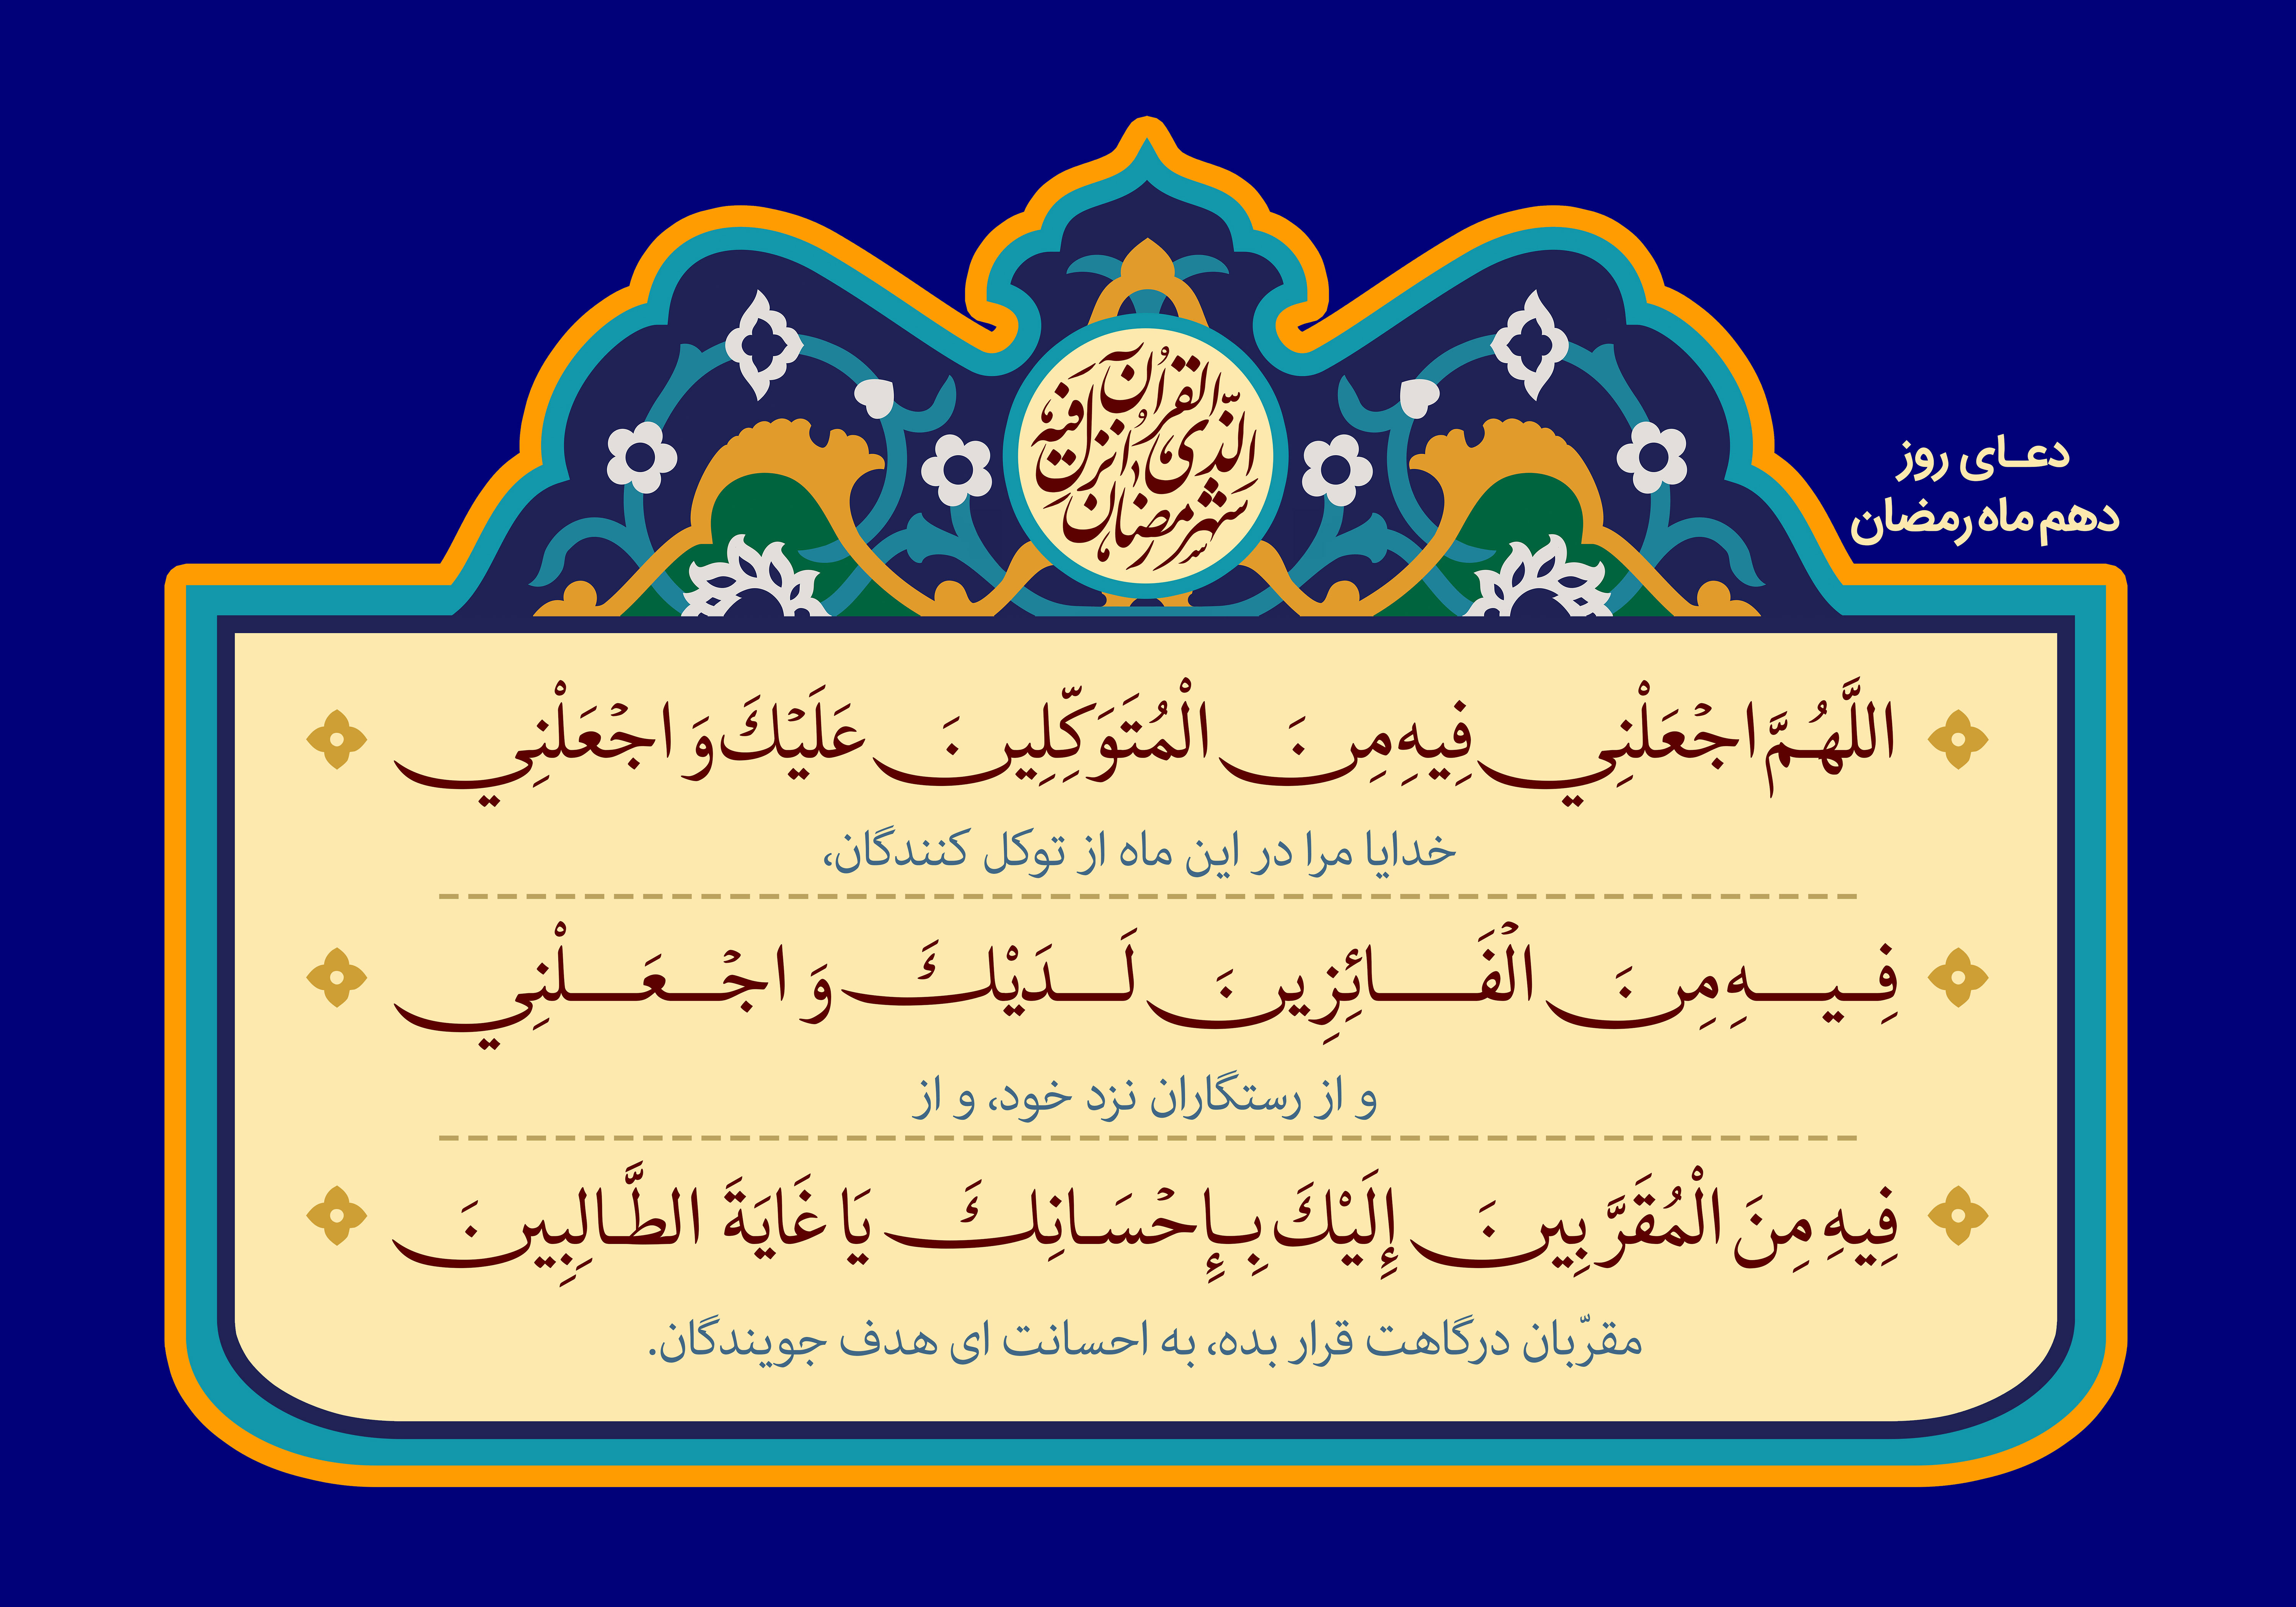 شهر رمضان الذی انزل فیه القرآن
دعای روز
دهم ماه رمضان
اللَّهُمَّ اجْعَلْنِي فِيهِ مِنَ الْمُتَوَكِّلِينَ عَلَيْكَ وَ اجْعَلْنِي
خدایا مرا در این ماه از توکل کنندگان،
فِيهِ مِنَ الْفَائِزِينَ لَدَيْكَ وَ اجْعَلْنِي
و از رستگاران نزد خود، و از
فِيهِ مِنَ الْمُقَرَّبِينَ إِلَيْكَ بِإِحْسَانِكَ يَا غَايَةَ الطَّالِبِينَ
مقرّبان درگاهت قرار بده، به احسانت ای هدف جویندگان.